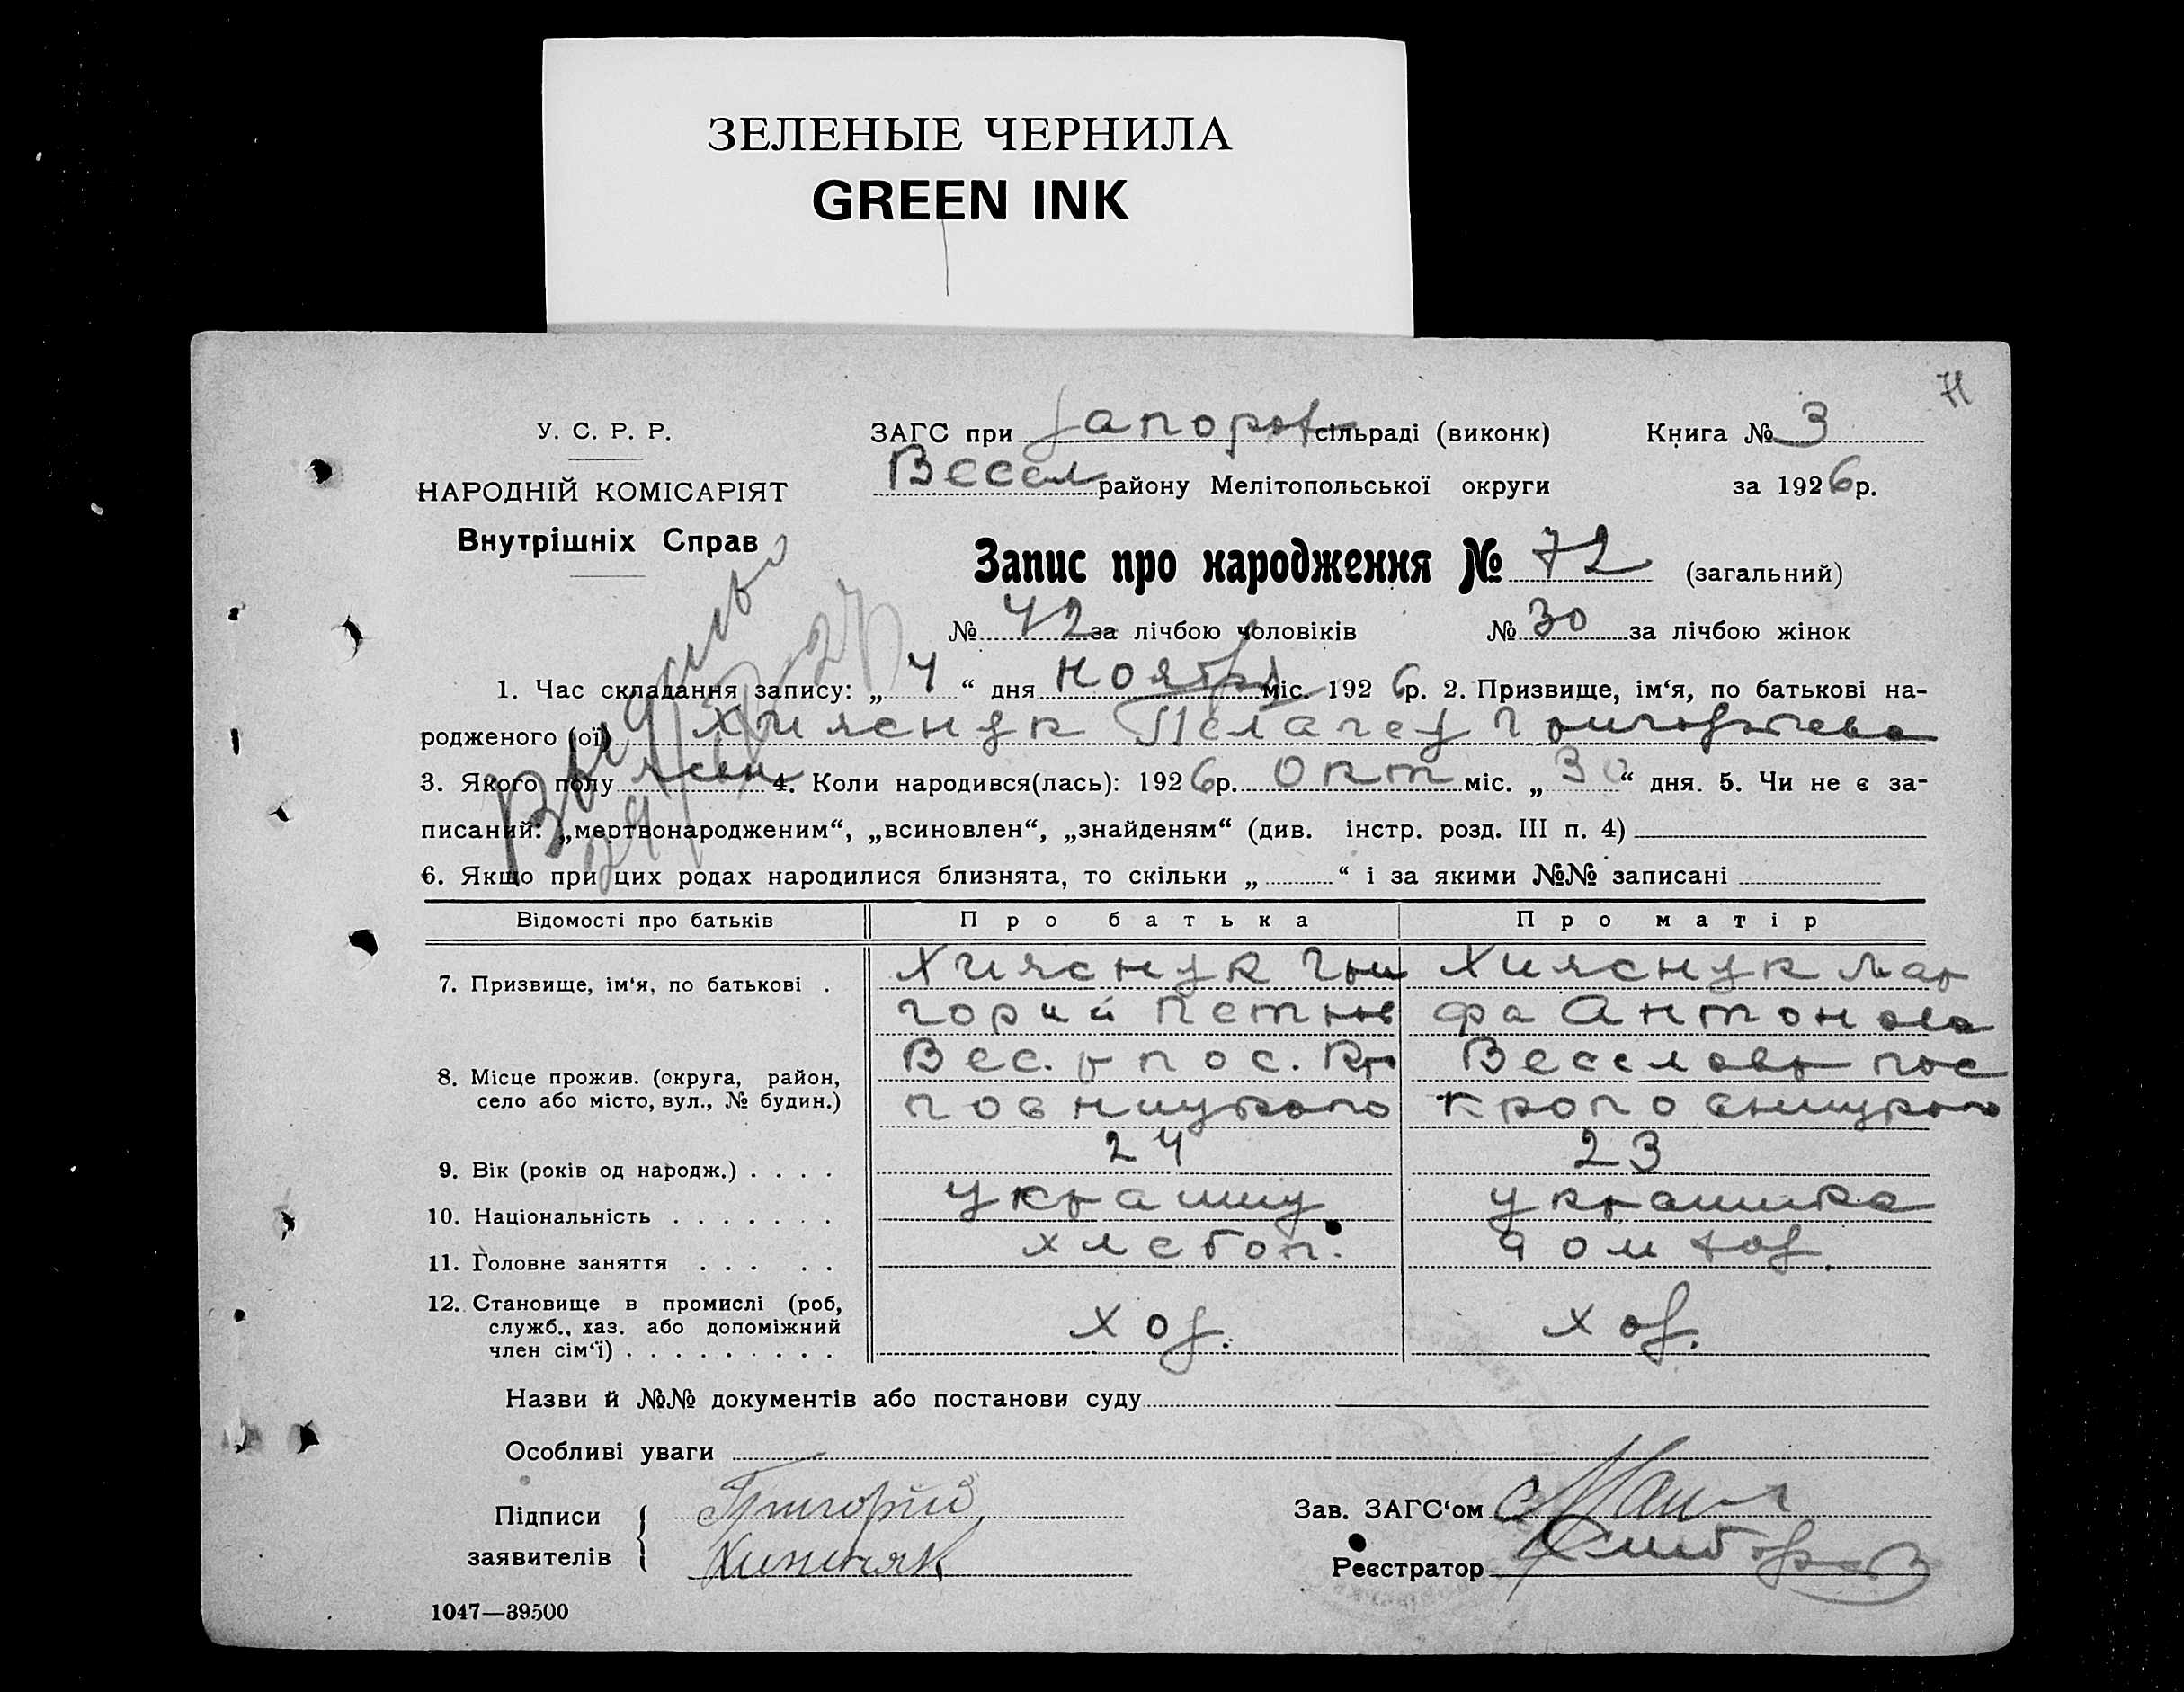 ЗЕЛЕНЫЕ ЧЕРНИЛА
GREEN INK
71
У. С. Р. Р.
НАРОДНІЙ КОМІСАРІЯТ
Внутрішніх Справ
ЗАГС при Запорож сільраді (виконк) Книга № 3
Весел району Мелітопольської округи за 1926 р.
Запис про народження № 72 (загальний)
№ 42 за лічбою чоловіків № 30 за лічбою жінок
1. Час складання запису: „ 4 “ дня ноября міс. 192 6 р. 2. Призвище, ім‘я, по батькові на-
родженого (ої) Пелагея Григорьева
3. Якого полу жен 4. Коли народився(лась): 192 6 р. Окт міс. „ 30 “ дня. 5. Чи не є за-
писаний: „мертвонародженим“, „всиновлен“, „знайденям“ (див. інстр. розд. III п. 4)
6. Якщо при цих родах народилися близнята, то скільки „ “ і за якими №№ записані
Відомості про батьків Про батька Про матір
7. Призвище, ім‘я, по батькові . Гри Мар
горий Петров фа Антонова
8. Місце прожив. (округа, район, село або місто, вул., № будин.) Вес. р пос. Кро Веселовр пос
повницкого кроповницкого
9. Вік (років од народж.) . . . . 24 23
10. Національність . . . . . . . украинц украинка
11. Головне заняття . . . . . хлебоп. дом хоз.
12. Становище в промислі (роб, служб., хаз. або допоміжний член сім‘ї) . . . . . . . . . хоз. хоз.
Назви й №№ документів або постанови суду
Особливі уваги
Підписи заявителів Григорий
Зав. ЗАГС‘ом
Реєстратор
1047—39500